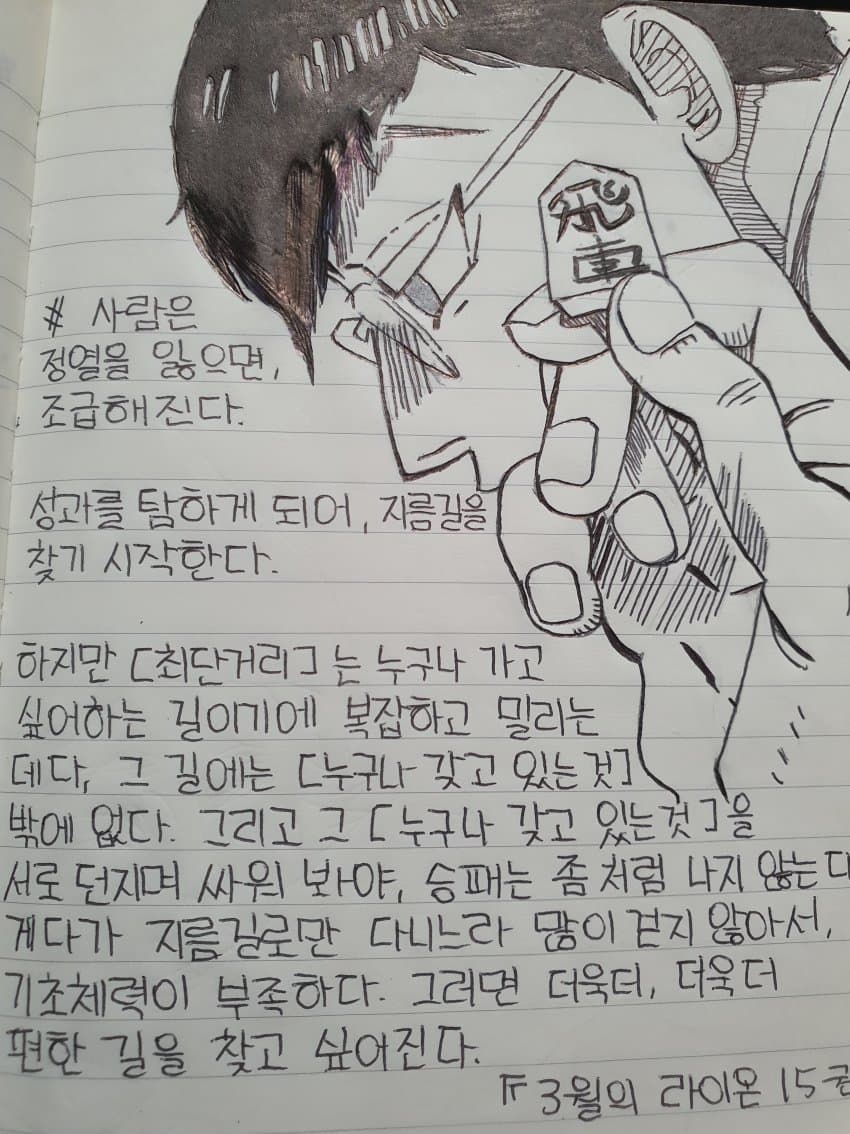 飛
車
# 사람은
정열을 잃으면,
조급해진다.
성과를 탐하게 되어, 지름길을
찾기 시작한다.
하지만 [최단거리]는 누구나 가고
싶어하는 길이기에 복잡하고 밀리는
데다, 그 길에는 [누구나 갖고 있는것]
밖에 없다. 그리고 그 [누구나 갖고 있는것]을
서로 던지며 싸워 봐야, 승패는 좀처럼 나지 않는다
게다가 지름길로만 다니느라 많이 걷지 않아서,
기초체력이 부족하다. 그러면 더욱더, 더욱더
편한 길을 찾고 싶어진다.
『3월의 라이온 15권